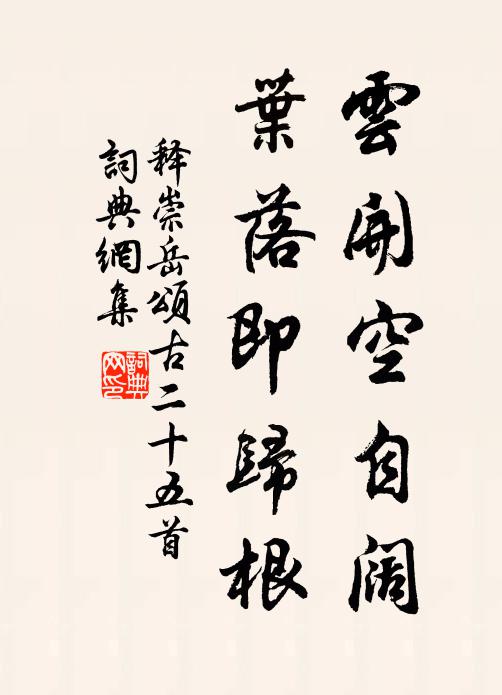 雲開空自闊
葉落即歸根
释崇岳頌古二十五首
詞典網集
詞典网印